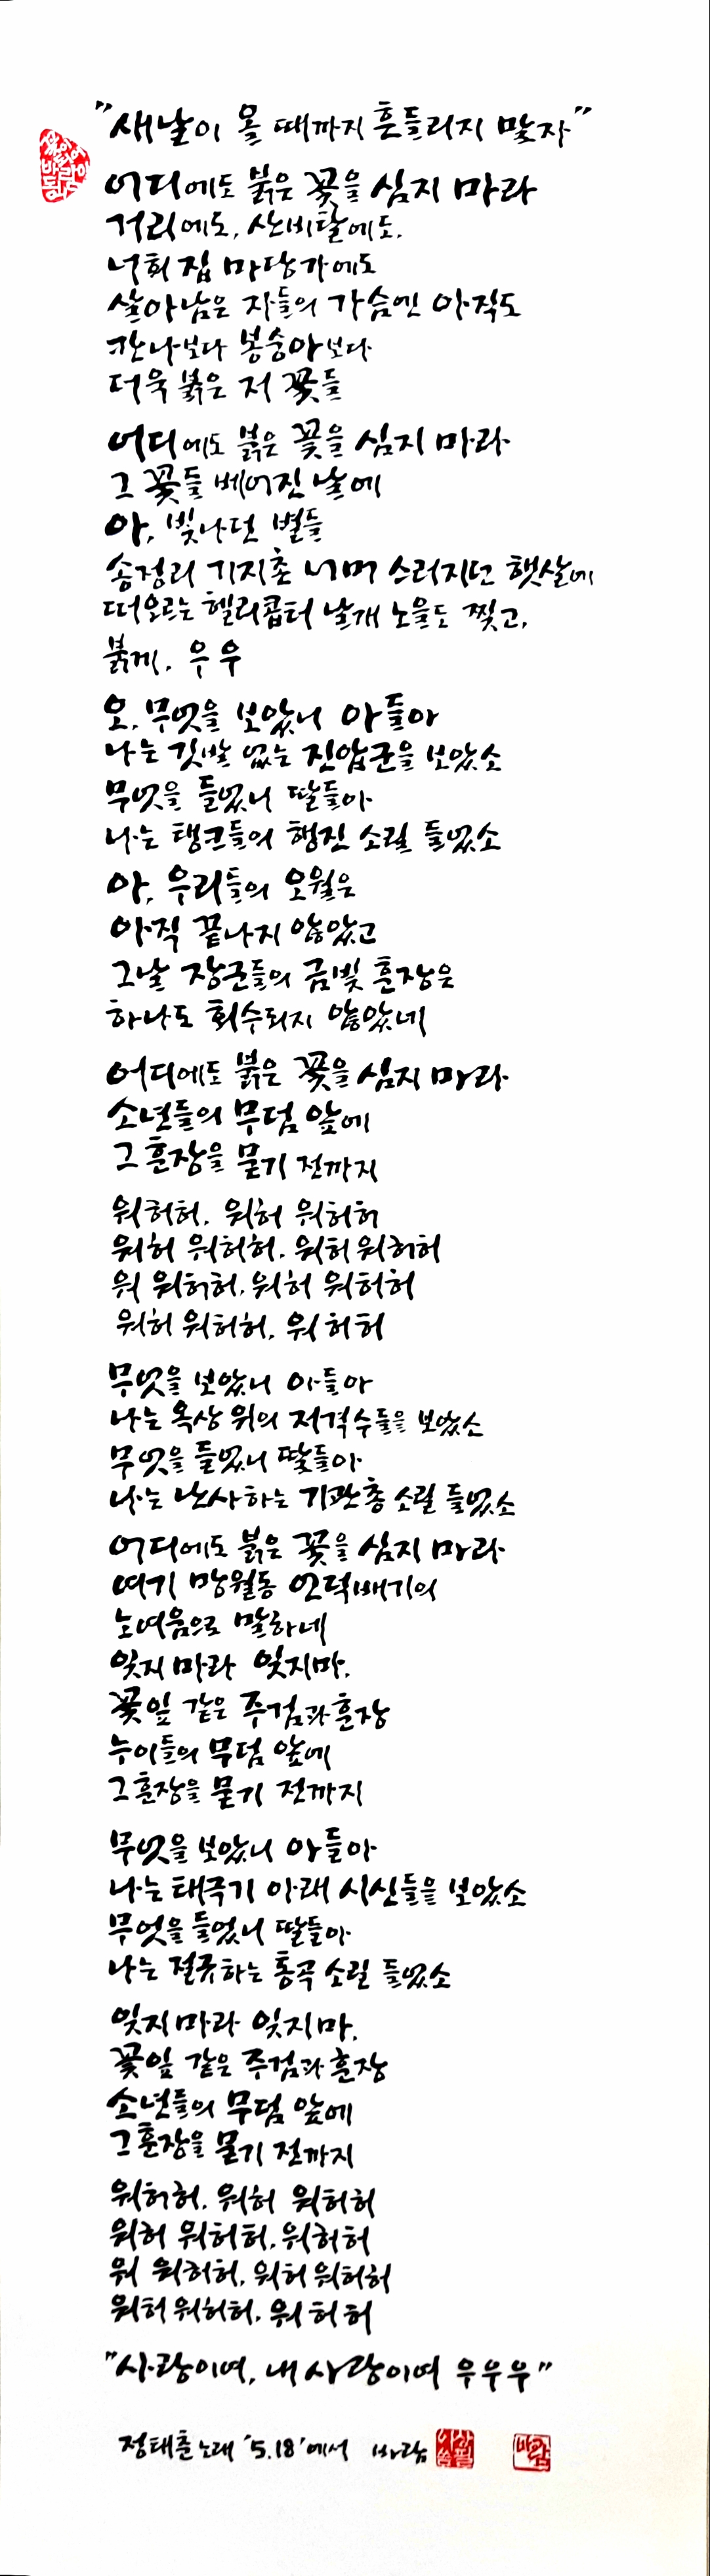 "새날이 올 때까지 흔들리지 맞자"
어디에도 붉은 꽃을 심지 마라
거리에도, 산비탈에도,
너희 집 마당가에도
살아남은 자들의 가슴엔 아직도
칸나보다 봉숭아보다
더욱 붉은 저 꽃들
어디에도 붉은 꽃을 심지 마라
그 꽃들 베어진 날에
아, 빛나던 별들
송정리 기지촌 너머 스러지던 햇살에
떠오르는 헬리콥터 날개 노을도 찢고,
붉게, 우우
오, 무엇을 보았니 아들아
나는 깃발 없는 진압군을 보았소
무엇을 들었니 딸들아
나는 탱크들의 행진 소릴 들었소
아, 우리들의 오월은
아직 끝나지 않았고
그날 장군들의 금빛 훈장은
하나도 회수되지 않았네
어디에도 붉은 꽃을 심지 마라
소년들의 무덤 앞에
그 훈장을 묻기 전까지
워허허, 워허 워허허
워허 워허허, 워허 워허허
워 워허허, 워허 워허허
워허 워허허, 워허허
무엇을 보았니 아들아
나는 옥상 위의 저격수들을 보았소
무엇을 들었니 딸들아
나는 난사하는 기관총 소릴 들었소
어디에도 붉은 꽃을 심지 마라
여기 망월동 언덕배기의
노여움으로 말하네
잊지 마라 잊지마,
꽃잎 같은 주검과 훈장
누이들의 무덤 앞에
그 훈장을 묻기 전까지
무엇을 보았니 아들아
나는 태극기 아래 시신들을 보았소
무엇을 들었니 딸들아
나는 절규하는 통곡 소릴 들었소
잊지 마라 잊지마,
꽃잎 같은 주검과 훈장
소년들의 무덤 앞에
그 훈장을 묻기 전까지
워허허, 워허 워허허
워허 워허허, 워허허
워 워허허, 워허 워허허
워허 워허허, 워허허
"사랑이여, 내 사랑이여 우우우"
정태춘 노래 '5.18'에서 바람
바람